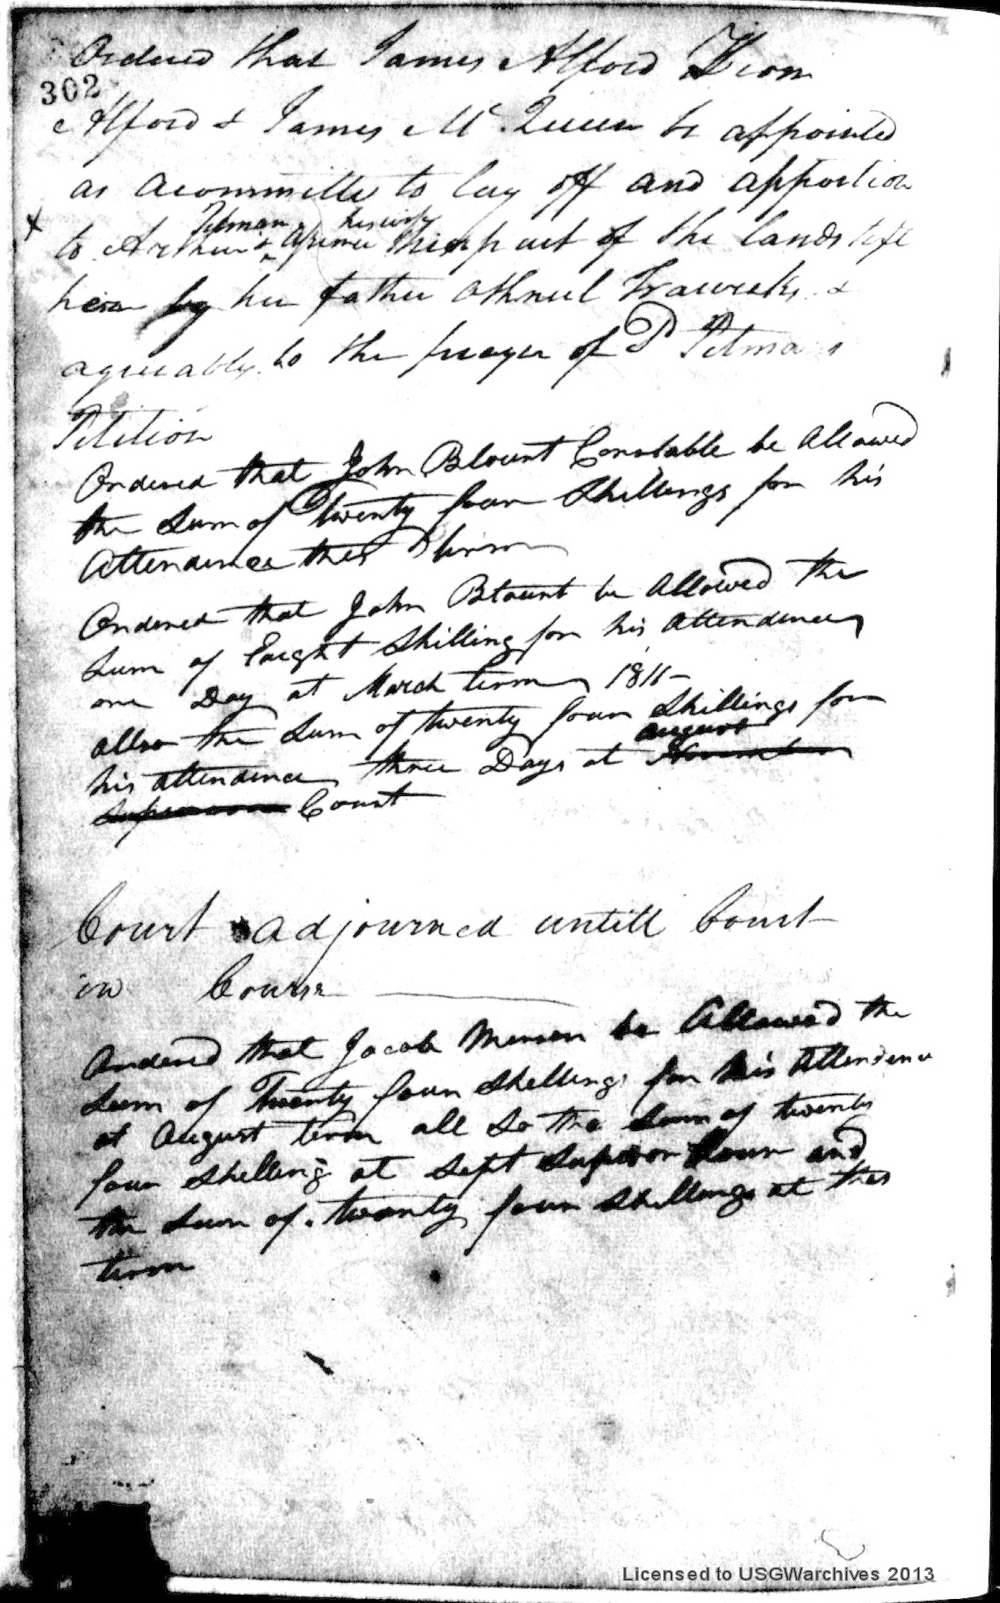 Ordered that James Alford
302
Alford & James Mc Queen be appointed
as acommitte to lay off and apportion
Pitman his wife
to Arthur & part of the lands left
her by her father Othneil Traweeks &
agreeably to the prayer of P Pitmans
Petition
Ordered that John Blount Constable be Allowed
the Sum of Twenty four Shillings for his
Attendence this Term
Ordered that John Blount be Allowed the
Sum of Eaight Shilling for his attendence
one Day at March term 1811
allso the Sum of twenty four Shillings for
august
his attendence three Days at November
Court
Court adjourned untill Court
in Course
Ordered that Jacob be Allowed the
Sum of Twenty four Shellings for his Attendence
at August term all So the Sum of twenty
four Shellings at Sept and
the Sum of twenty four Shellings at this
term
Licensed to USGWarchives 2013